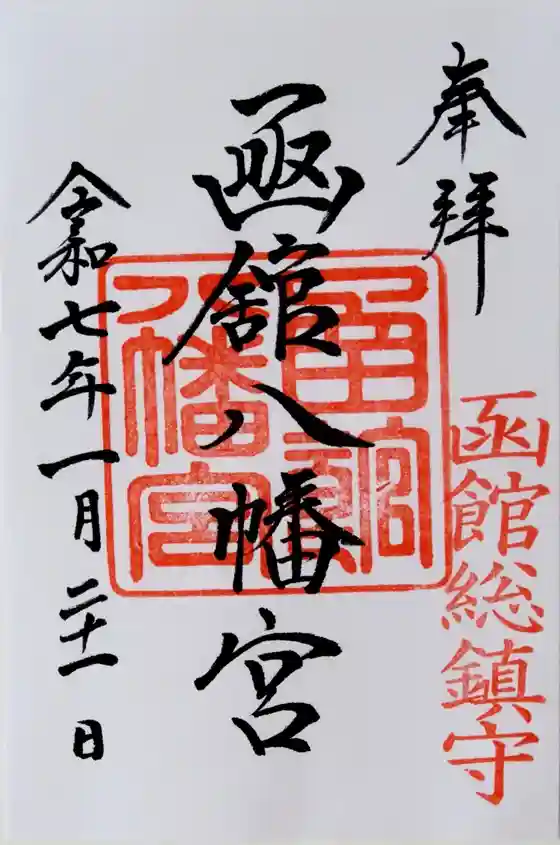 奉拝
函館総鎮守
函館八幡宮
函館八幡宮
令和七年一月二十一日